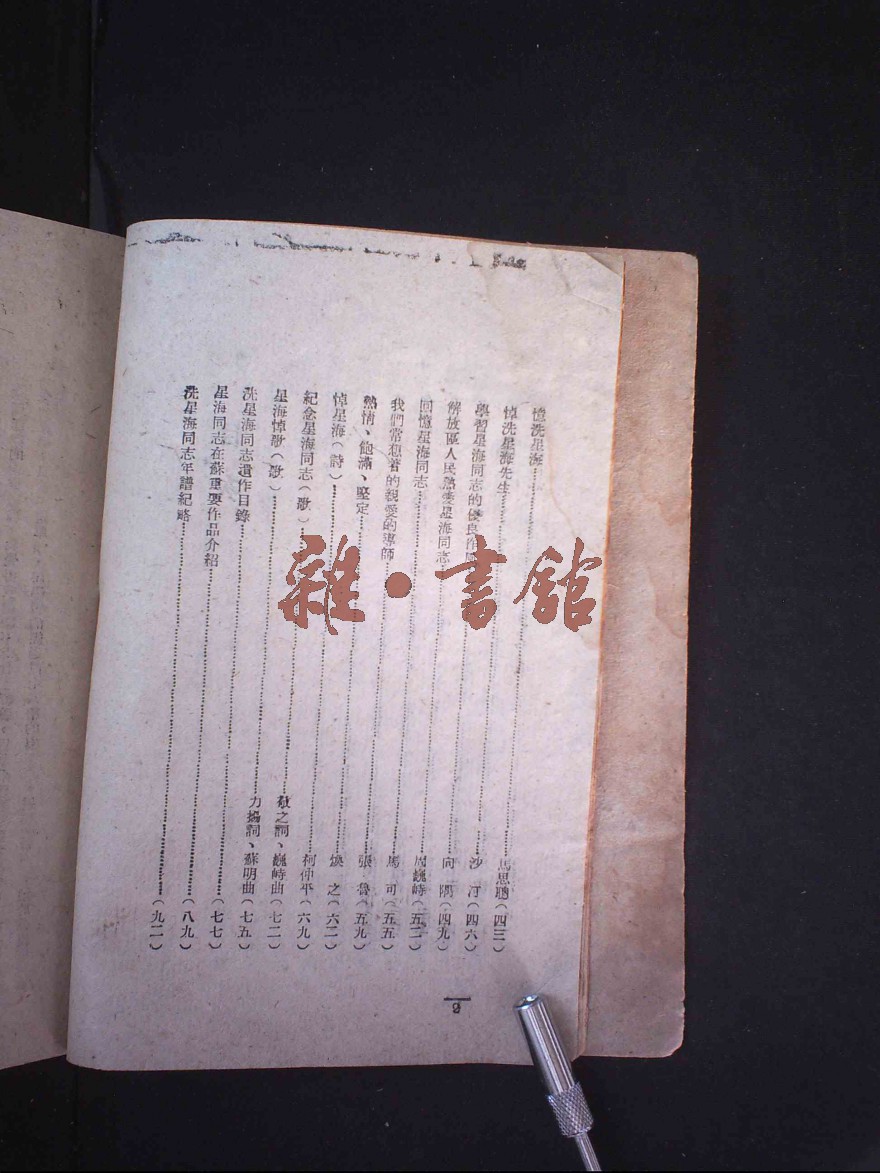 憶洗星海……馬思聰(四三)
悼洗星海先生……沙 汀(四六)
學習星海同志的優良作……向 隅(四九)
解放區人民熱愛星海同志……周巍峙(五二)
回憶星海同志……馬 可(五五)
我們常想着的親愛的導師……張 魯(五九)
熱情、飽滿、堅定……煥 之(六二)
悼星海(詩)……柯仲平(六九)
紀念星海同志(歌)……敬之詞、巍峙曲(七二)
星海悼歌(歌)……力揚詞、蘇明曲(七五)
洗星海同志遺作目錄……(七七)
星海同志在蘇重要作品介紹……(八九)
洗星海同志年譜紀略……(九二)
雜·書館